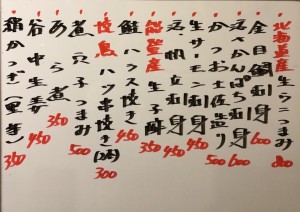 北海道産生うにつまみ 800
金目鯛刺身 600
活〆かんぱち刺身 600
かつお土佐造り 500
生サーモン刺身 450
活帆立刺身 450
能登産生子酢 450
鮭ハラス焼き 450
焼鳥ハツ串焼き(2本) 300
煮穴子つまみ 500
あら煮 350
谷中生姜 450
絹かつぎ(里芋) 350